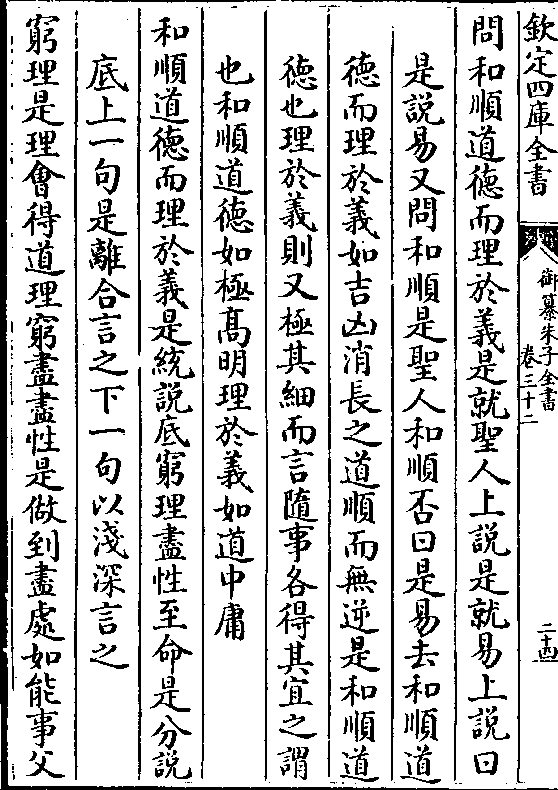 欽定四庫全書
御纂朱子全書
卷三十二
二十四
問和順道德而理於義是就聖人上說是就易上說曰
是說易又問和順是聖人和順否曰是易去和順道
德而理於義如吉凶消長之道順而無逆是和順道
德也理於義則又極其細而言隨事各得其宜之謂
也和順道德如極髙明理於義如道中庸
和順道德而理於義是統說底窮理盡性至命是分說
底上一句是離合言之下一句以淺深言之
窮理是理會得道理窮盡盡性是做到盡處如能事父